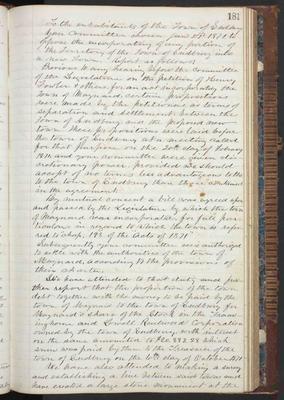 181
To the inhabitants of the Town of Sudbury
Your Committee chosen June 1870 to
oppose the incorporating of any portion of
the Territory of the Town of Sudbury into
a new Town. Report as follows
Previous to any hearing before the Committee
of the Legislature on the petition of Henry
Fowler & others for an act incorporating the
Town of Maynard certain propositions
were made by the petitioners as terms of
separation and settlement between the
Town of Sudbury and the proposed new
town. These propositions were laid before
the town of Sudbury at a meeting called
for that purpose on the 20th day of February
1871 and your committee were given
discretionary power provided we should
accept of no terms less advantageous to
the town of Sudbury than those
in the agreement.
By mutual consent a bill was agreed upon
and passed by the Legislature by which the town
of Maynard was incorporated for full
particulars in regard to which the town is
referred to Chap. 198 of the acts of 1871
Subsequently your committee were authorized
to settle with the authorities of the town of
Maynard according to the provisions of
their charter.
We have attended to that duty and
further report that the proportion of the town
debt together with the money to be paid by the
town of Maynard to the town of Sudbury for
Maynard's share of the Stock in the Framingham
and Lowell Railroad Corporation
owned by the town of Sudbury with interest
on the same amounted to which
sum was paid by them to the Treasurer of the
town of Sudbury on the 6th day of October 1871
We have also attended to making a survey
and establishing a line between said towns and
have erected a large stone monument at the